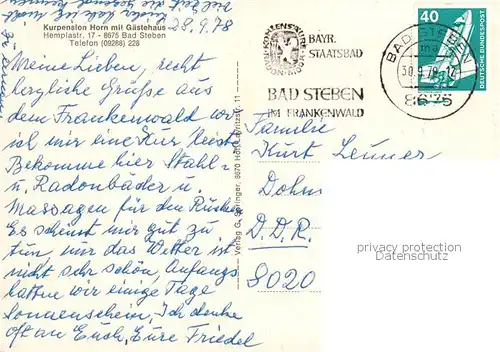 Kurpension Horn mit Gästehaus
Hemplastr. 17 - 8675 Bad Steben
Telefon (09288) 228
28.9.78
Meine Lieben, recht
herzliche Grüße aus
dem Frankenwald wo
ich mir eine Kur leiste
Bekomme hier Stahl-
u. Radonbäder u.
Massagen für den Rücken
Es scheint mir gut zu
tun, nur das Wetter ist
nicht sehr schön, Anfangs
hatten wir einige Tage
Sonnenschein, Ich denke
oft an Euch, Eure Friedel
Verlag G. 8670 Hof, 11
KOHLENS KURE
RADON MOOR
BAYR.
STAATSBAD
BAD STEBEN
IM FRANKENWALD
BAD STEBEN
30.9.78
8675
40
DEUTSCHE BUNDESPOST
Familie
Kurt
Dohna
D.D.R.
8020
privacy protection
Datenschutz